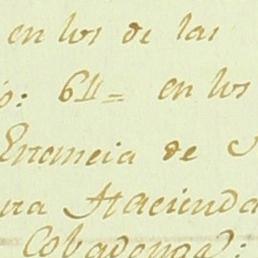 en los de las
o: 611= en los
Errancia de
ra Hacienda
Cobadonga: